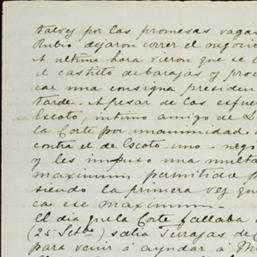 talvez por las promesas vagas
Rubio dejaron correr el negocio
A ultima hora vieron que se l
el castillo de barajas y pro
car una consigna presiden
tarde. A pesar de los esfue
Escoto, intimo amigo de D
la Corte por unanimidad
contra el de Escoto - uno - neg
y les impuso una multa
maximum permitido p
siendo la primera vez que
ca ese maximum
El dia q. la Corte fallaba
(25 Setbe) salia Terrajas de C
para venir á ayudar á M